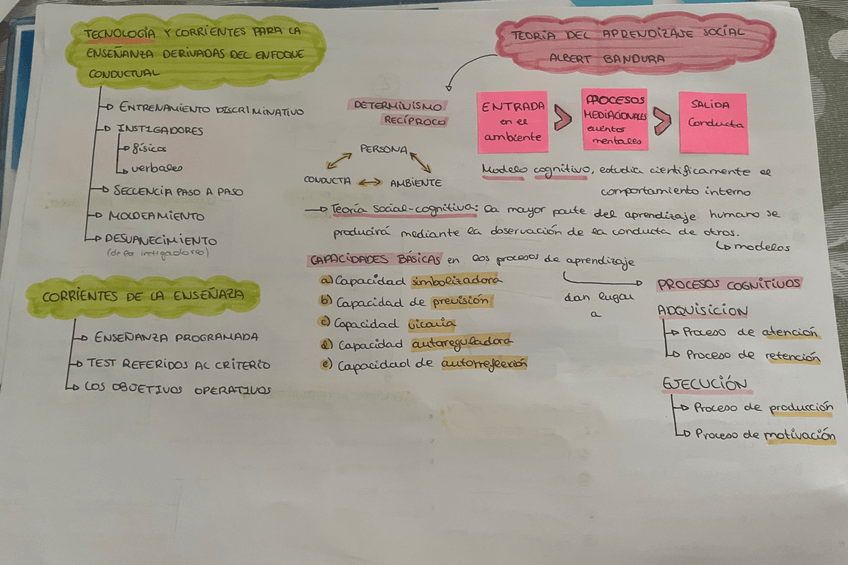 TECNOLOGÍA Y CORRIENTES PARA LA
ENSEÑANZA DERIVADAS DEL ENFOQUE
CONDUCTUAL
ENTRENAMIENTO DISCRIMINATIVO
INSTIGADORES
físicos
verbales
SECUENCIA PASO A PASO
MOLDEAMIENTO
DESVANECIMIENTO
(de los instigadores)
CORRIENTES DE LA ENSEÑAZA
ENSEÑANZA PROGRAMADA
TEST REFERIDOS AL CRITERIO
LOS OBJETIVOS OPERATIVOS
TEORÍA DEL APRENDIZAJE SOCIAL
ALBERT BANDURA
DETERMINISMO
RECÍPROCO
PERSONA
CONDUCTA
AMBIENTE
ENTRADA
en el
ambiente
PROCESOS
MEDIACIONALES
eventos
mentales
SALIDA
Conducta
Modelo cognitivo, estudia científicamente el
comportamiento interno
Teoría social-cognitiva: la mayor parte del aprendizaje humano se
producirá mediante la observación de la conducta de otros.
modelos
CAPACIDADES BÁSICAS en los procesos de aprendizaje
a) Capacidad simbolizadora
b) Capacidad de previsión
c) Capacidad vicaria
d) Capacidad autoreguladora
e) Capacidad de autorreflexión
dan lugar
a
PROCESOS COGNITIVOS
ADQUISICION
Proceso de atención
Proceso de retención
EJECUCIÓN
Proceso de producción
Proceso de motivación